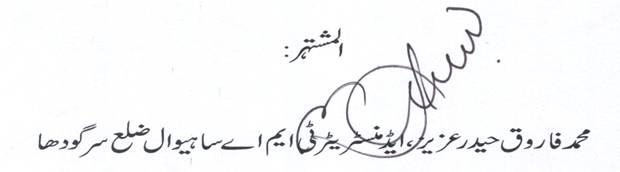 المشتہر:
محمد فاروق حیدر عزیز، ایڈمنسٹریٹر ٹی ایم اے ساہیوال ضلع سرگودھا